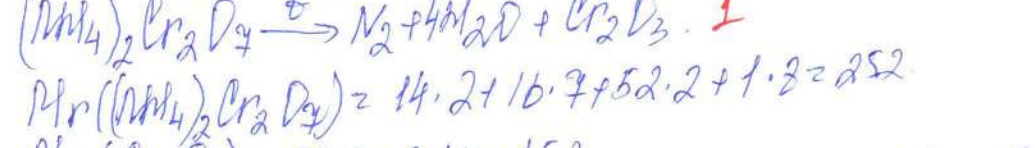 (NH₄)₂Cr₂O₇ —t→ N₂ + 4H₂O + Cr₂O₃. 1
Mr((NH₄)₂Cr₂O₇) = 14·2+16·7+52·2+1·8=252